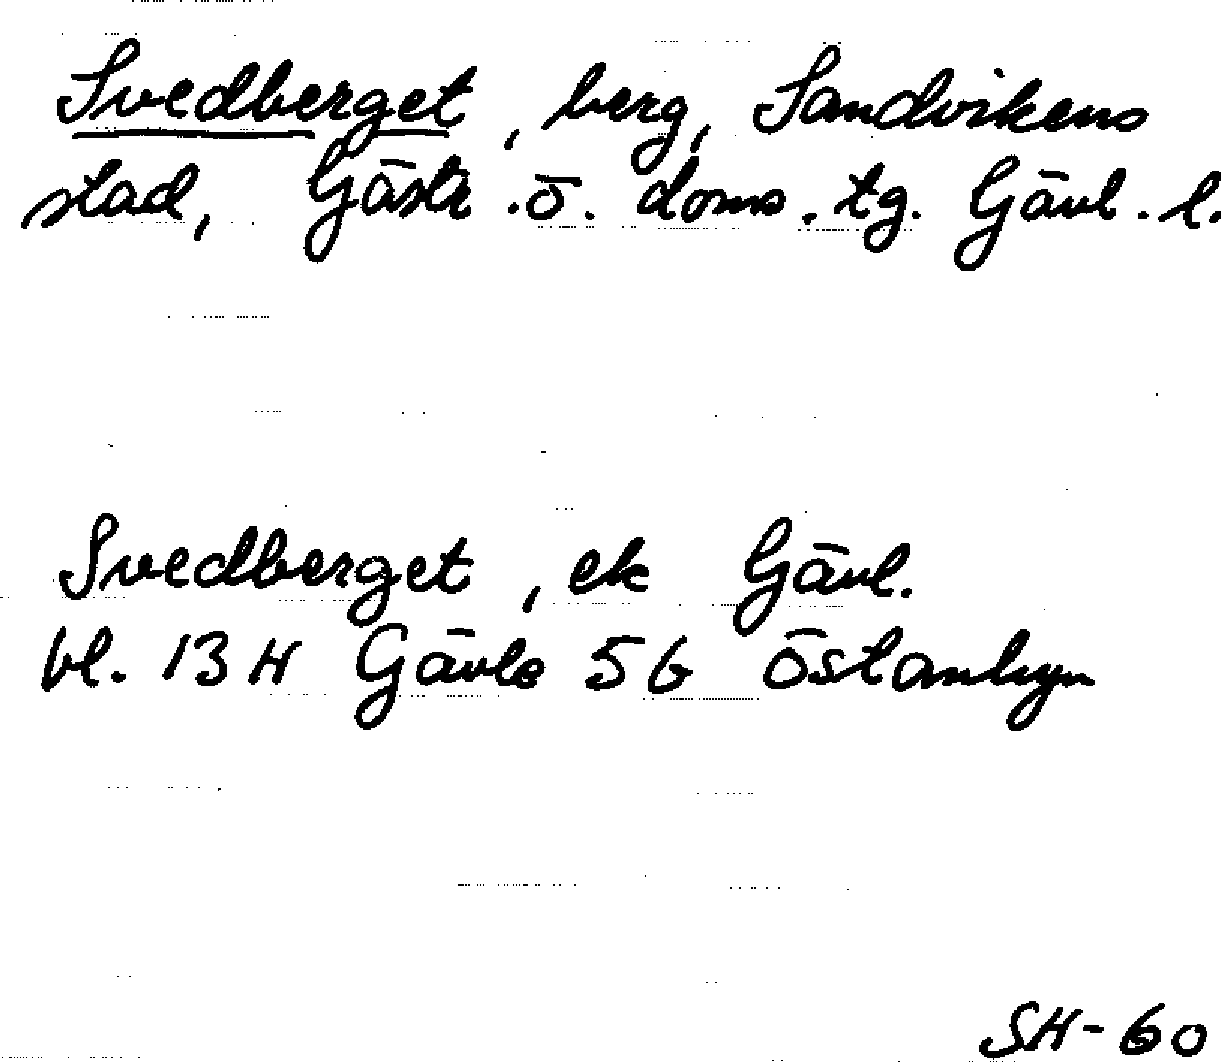 Svedberget, berg, Sandvikens
stad, Gästr. ö. doms. tg. Gävl. l.
Svedberget, ek Gävl.
bl. 13 H Gävle 5 G Östanbyn
SH-60